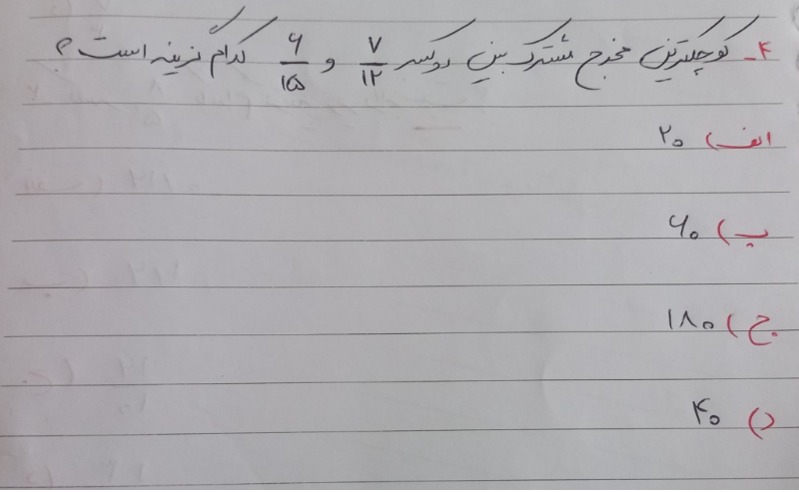 ۴- کوچکترین مخرج مشترک بین دو کسر ۷/۱۲ و ۶/۱۵ کدام گزینه است ؟
الف) ۲۰
ب) ۶۰
ج) ۱۸۰
د) ۴۰